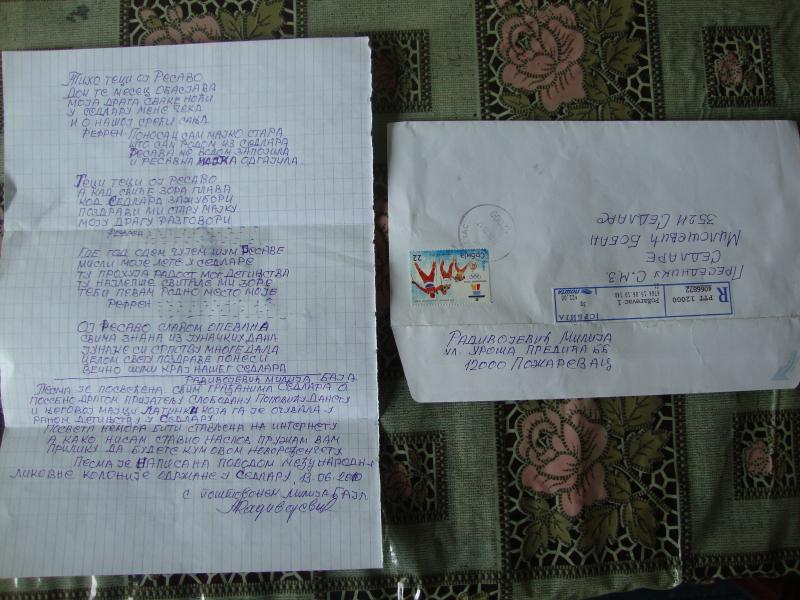 Тихо теци ој Ресаво
Док те месец обасјава
Моја драга сваке ноћи
У Седлару мене чека
И о нашој срећи сања
Рефрен: Поносан сам мајко стара
што сам родом из Седлара
Ресава ме водом запојила
и Ресавка мајка одгајила
Теци теци ој Ресаво
А кад сване зора плава
Код Седлара зажубори
Поздрави ми стару мајку
Моју драгу разговори
Рефрен
Где год одем чујем шум Ресаве
Мисли моје лете у Седларе
Ту прохуја радост мог детињства
Ту најлепше свитале ми зоре
Теби певам родно место моје
Рефрен
Ој Ресаво славом опевана
Свима знана из јуначких дана
Јунаке си српству многе дала
Целом свету поздраве понеси
Вечно шуми крај нашег Седлара
Радивојевић Милија Баја
Песма је посвећена свим грађанима Седлара а
посебно драгом пријатељу Слободану Поповићу Данету
и његовој мајци Латинки која га је отхвала у
раном детињству у Седлару.
Посвета немора бити стављена на интернету
а како нисам ставио наслов пружам вам
прилику да будете кумовом новорођенчету.
Песма је написана поводом међународне
ликовне колоније одржане у Седлару, 13.06.2010
с поштовањем Милија Баја
Радивојевић
Председнику С.М.З.
Седларе
Милошевић Бобан
35211 Седларе
Србија
22
R
РТТ 12000
Požarevac 1
4066822
СРБИЈА
Радивојевић Милија
ул. Уроша Предића бб
12000 Пожаревац